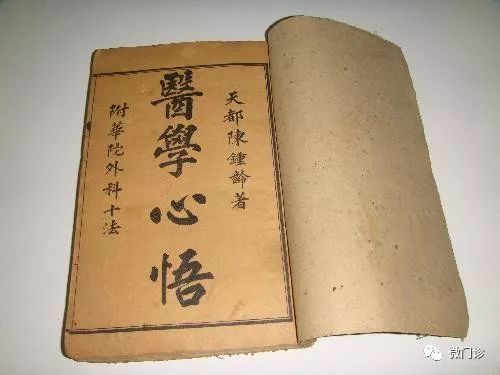 天都陳鍾齡著
醫學心悟
附華陀外科十法
微门诊